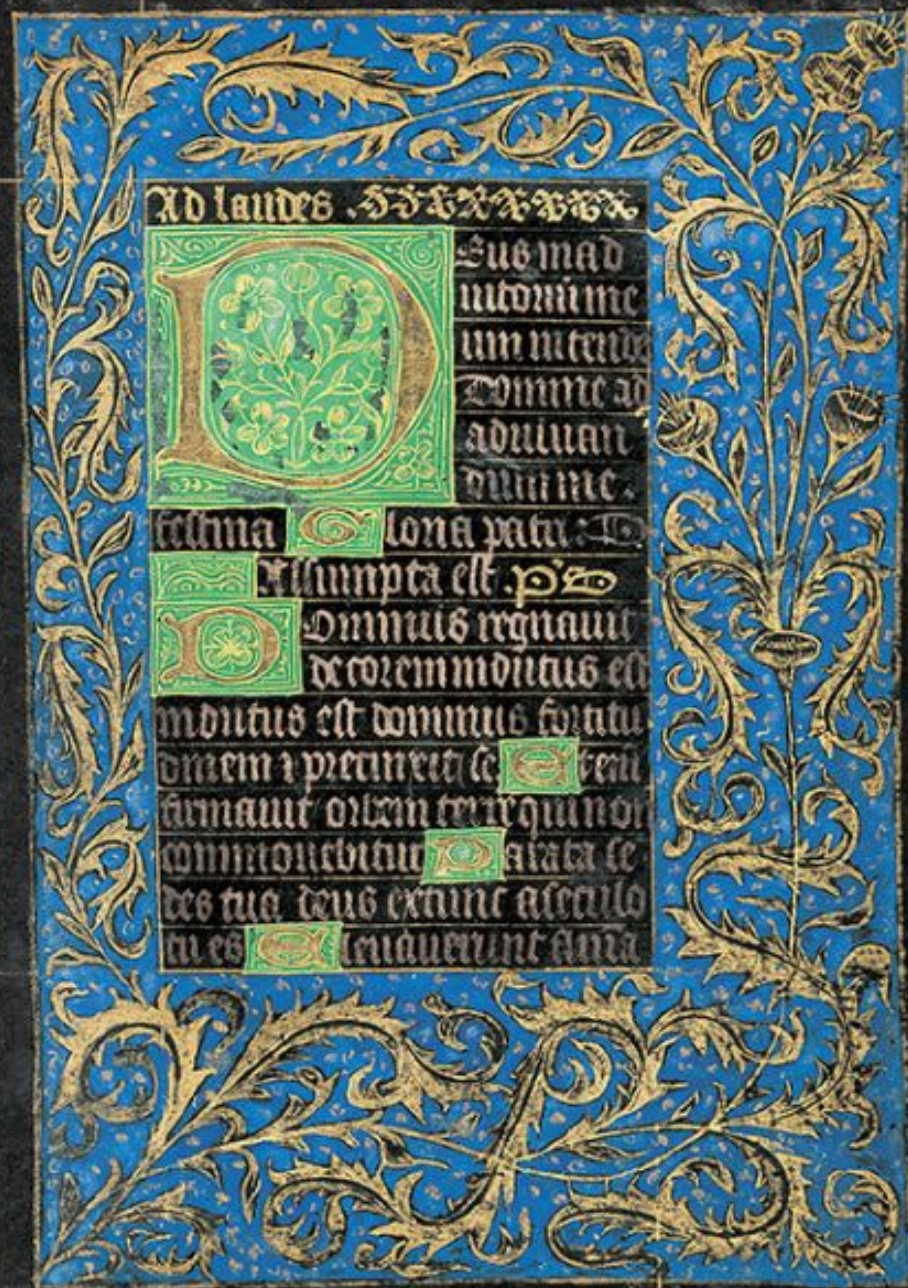 Ad laudes .
Deus in ad
iutoriu me
um intende
Domine ad
adiuuan
dum me.
festina Gloria patri :
Assumpta est . ps
Dominus regnauit
decorem indutus est
indutus est dominus fortitu
dinem ⁊ precinxit se Eteni
firmauit orbem terre qui non
commouebitur Parata se
des tua deus extunc a seculo
tu es Eleuauerunt flumina